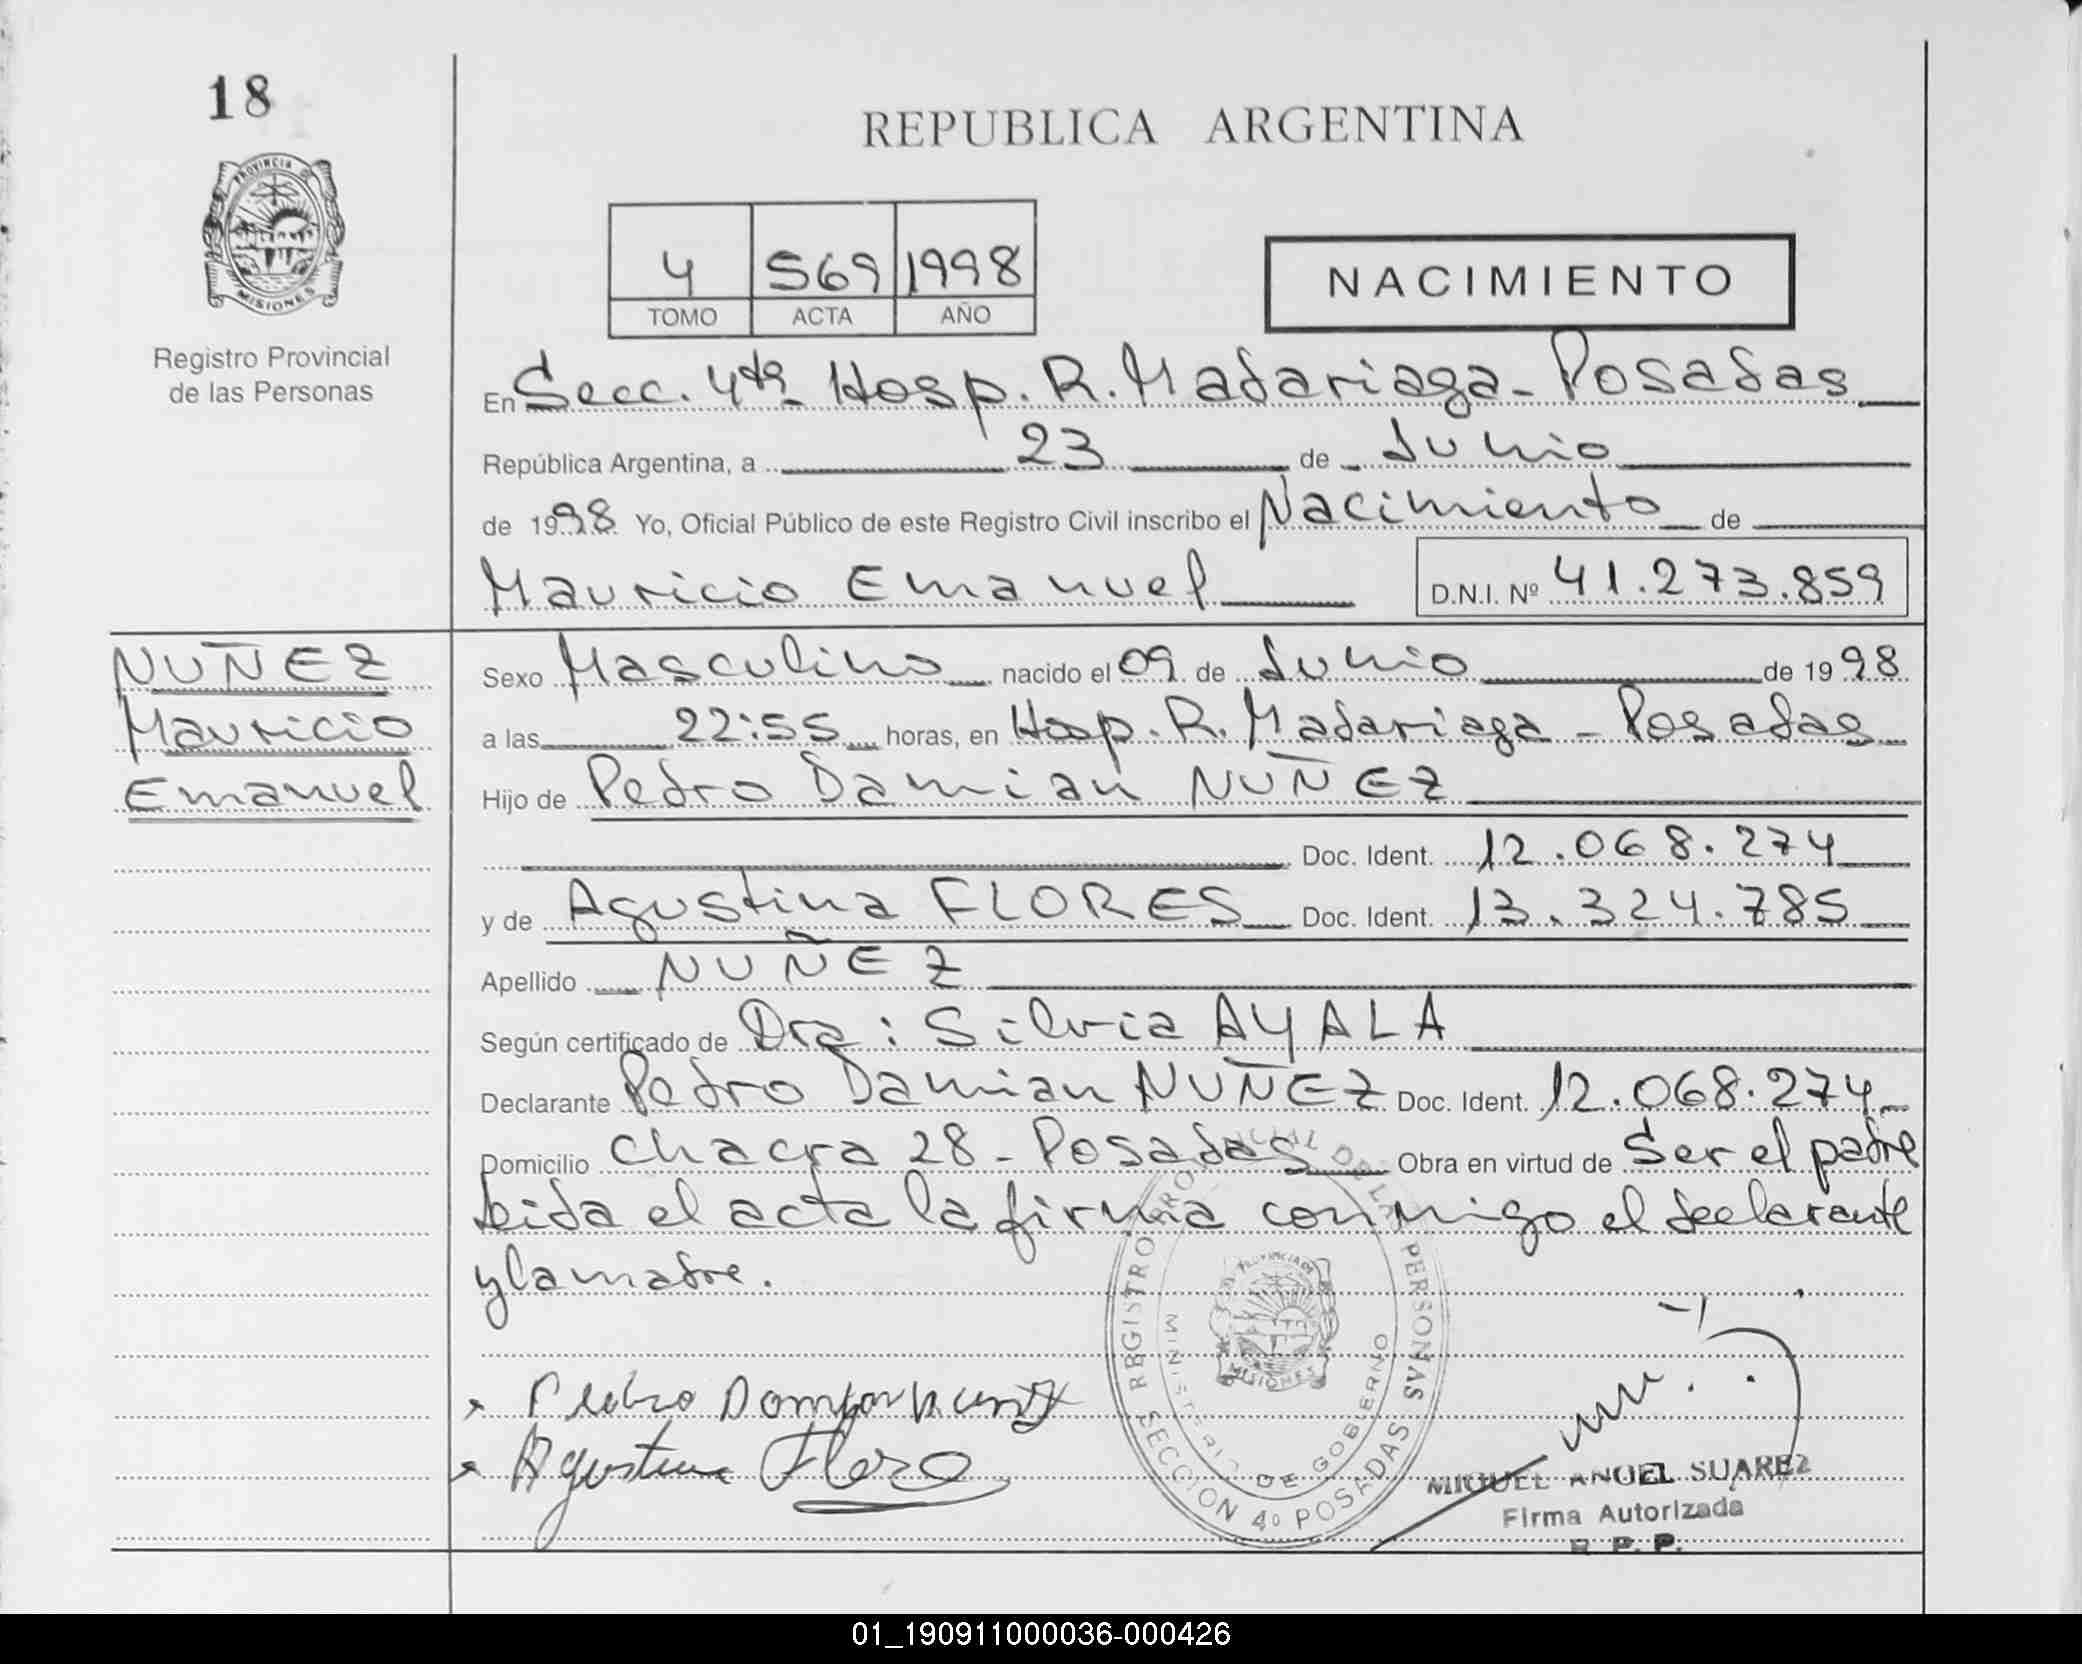 18
REPUBLICA ARGENTINA
PROVINCIA DE
MISIONES
Registro Provincial
de las Personas
4 569 1998
TOMO ACTA AÑO
NACIMIENTO
En Secc. 4ta Hosp. R. Madariaga - Posadas
República Argentina, a 23 de Junio
de 1998 Yo, Oficial Público de este Registro Civil inscribo el Nacimiento de
Mauricio Emanuel D.N.I. Nº 41.273.859
NUÑEZ
Mauricio
Emanuel
Sexo Masculino nacido el 09 de Junio de 1998
a las 22:55 horas, en Hosp. R. Madariaga - Posadas
Hijo de Pedro Damian NUÑEZ
Doc. Ident. 12.068.274
y de Agustina FLORES Doc. Ident. 13.324.785
Apellido NUÑEZ
Según certificado de Dra: Silvia AYALA
Declarante Pedro Damian NUÑEZ Doc. Ident. 12.068.274
Domicilio chacra 28 - Posadas Obra en virtud de Ser el padre
Leida el acta la firma conmigo el declarante
y la madre.
REGISTRO PROVINCIAL DE LAS PERSONAS
MINISTERIO DE GOBIERNO
MISIONES
SECCION 4º POSADAS
Agustina Flores
MIGUEL ANGEL SUAREZ
Firma Autorizada
R. P. P.
01_190911000036-000426